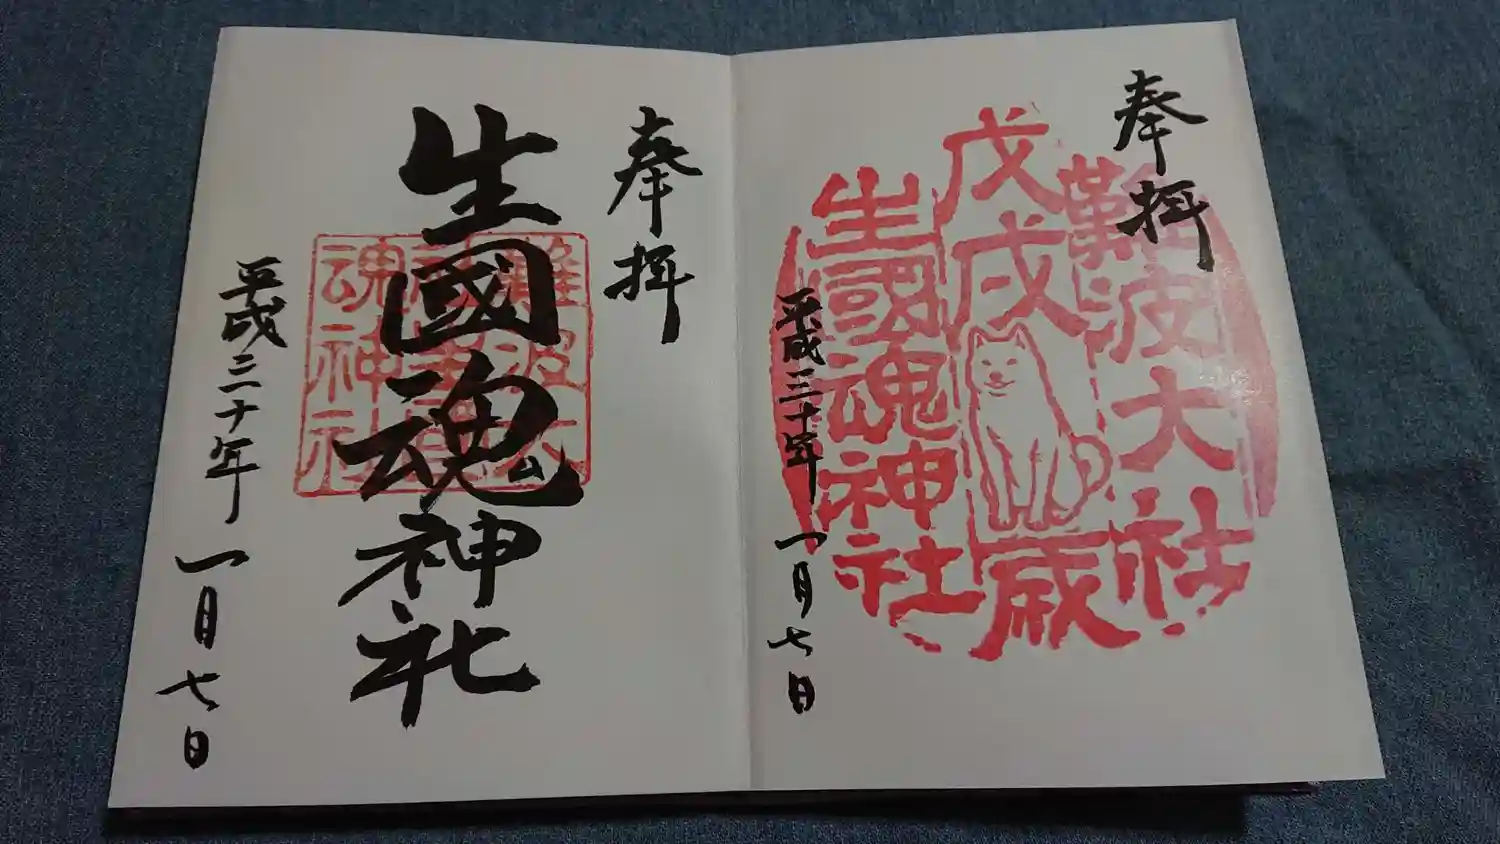 奉拝
難波大社
戊戌
歳
生國魂神社
平成三十年一月七日
奉拝
生國魂神社
難波大
魂神社
平成三十年一月七日